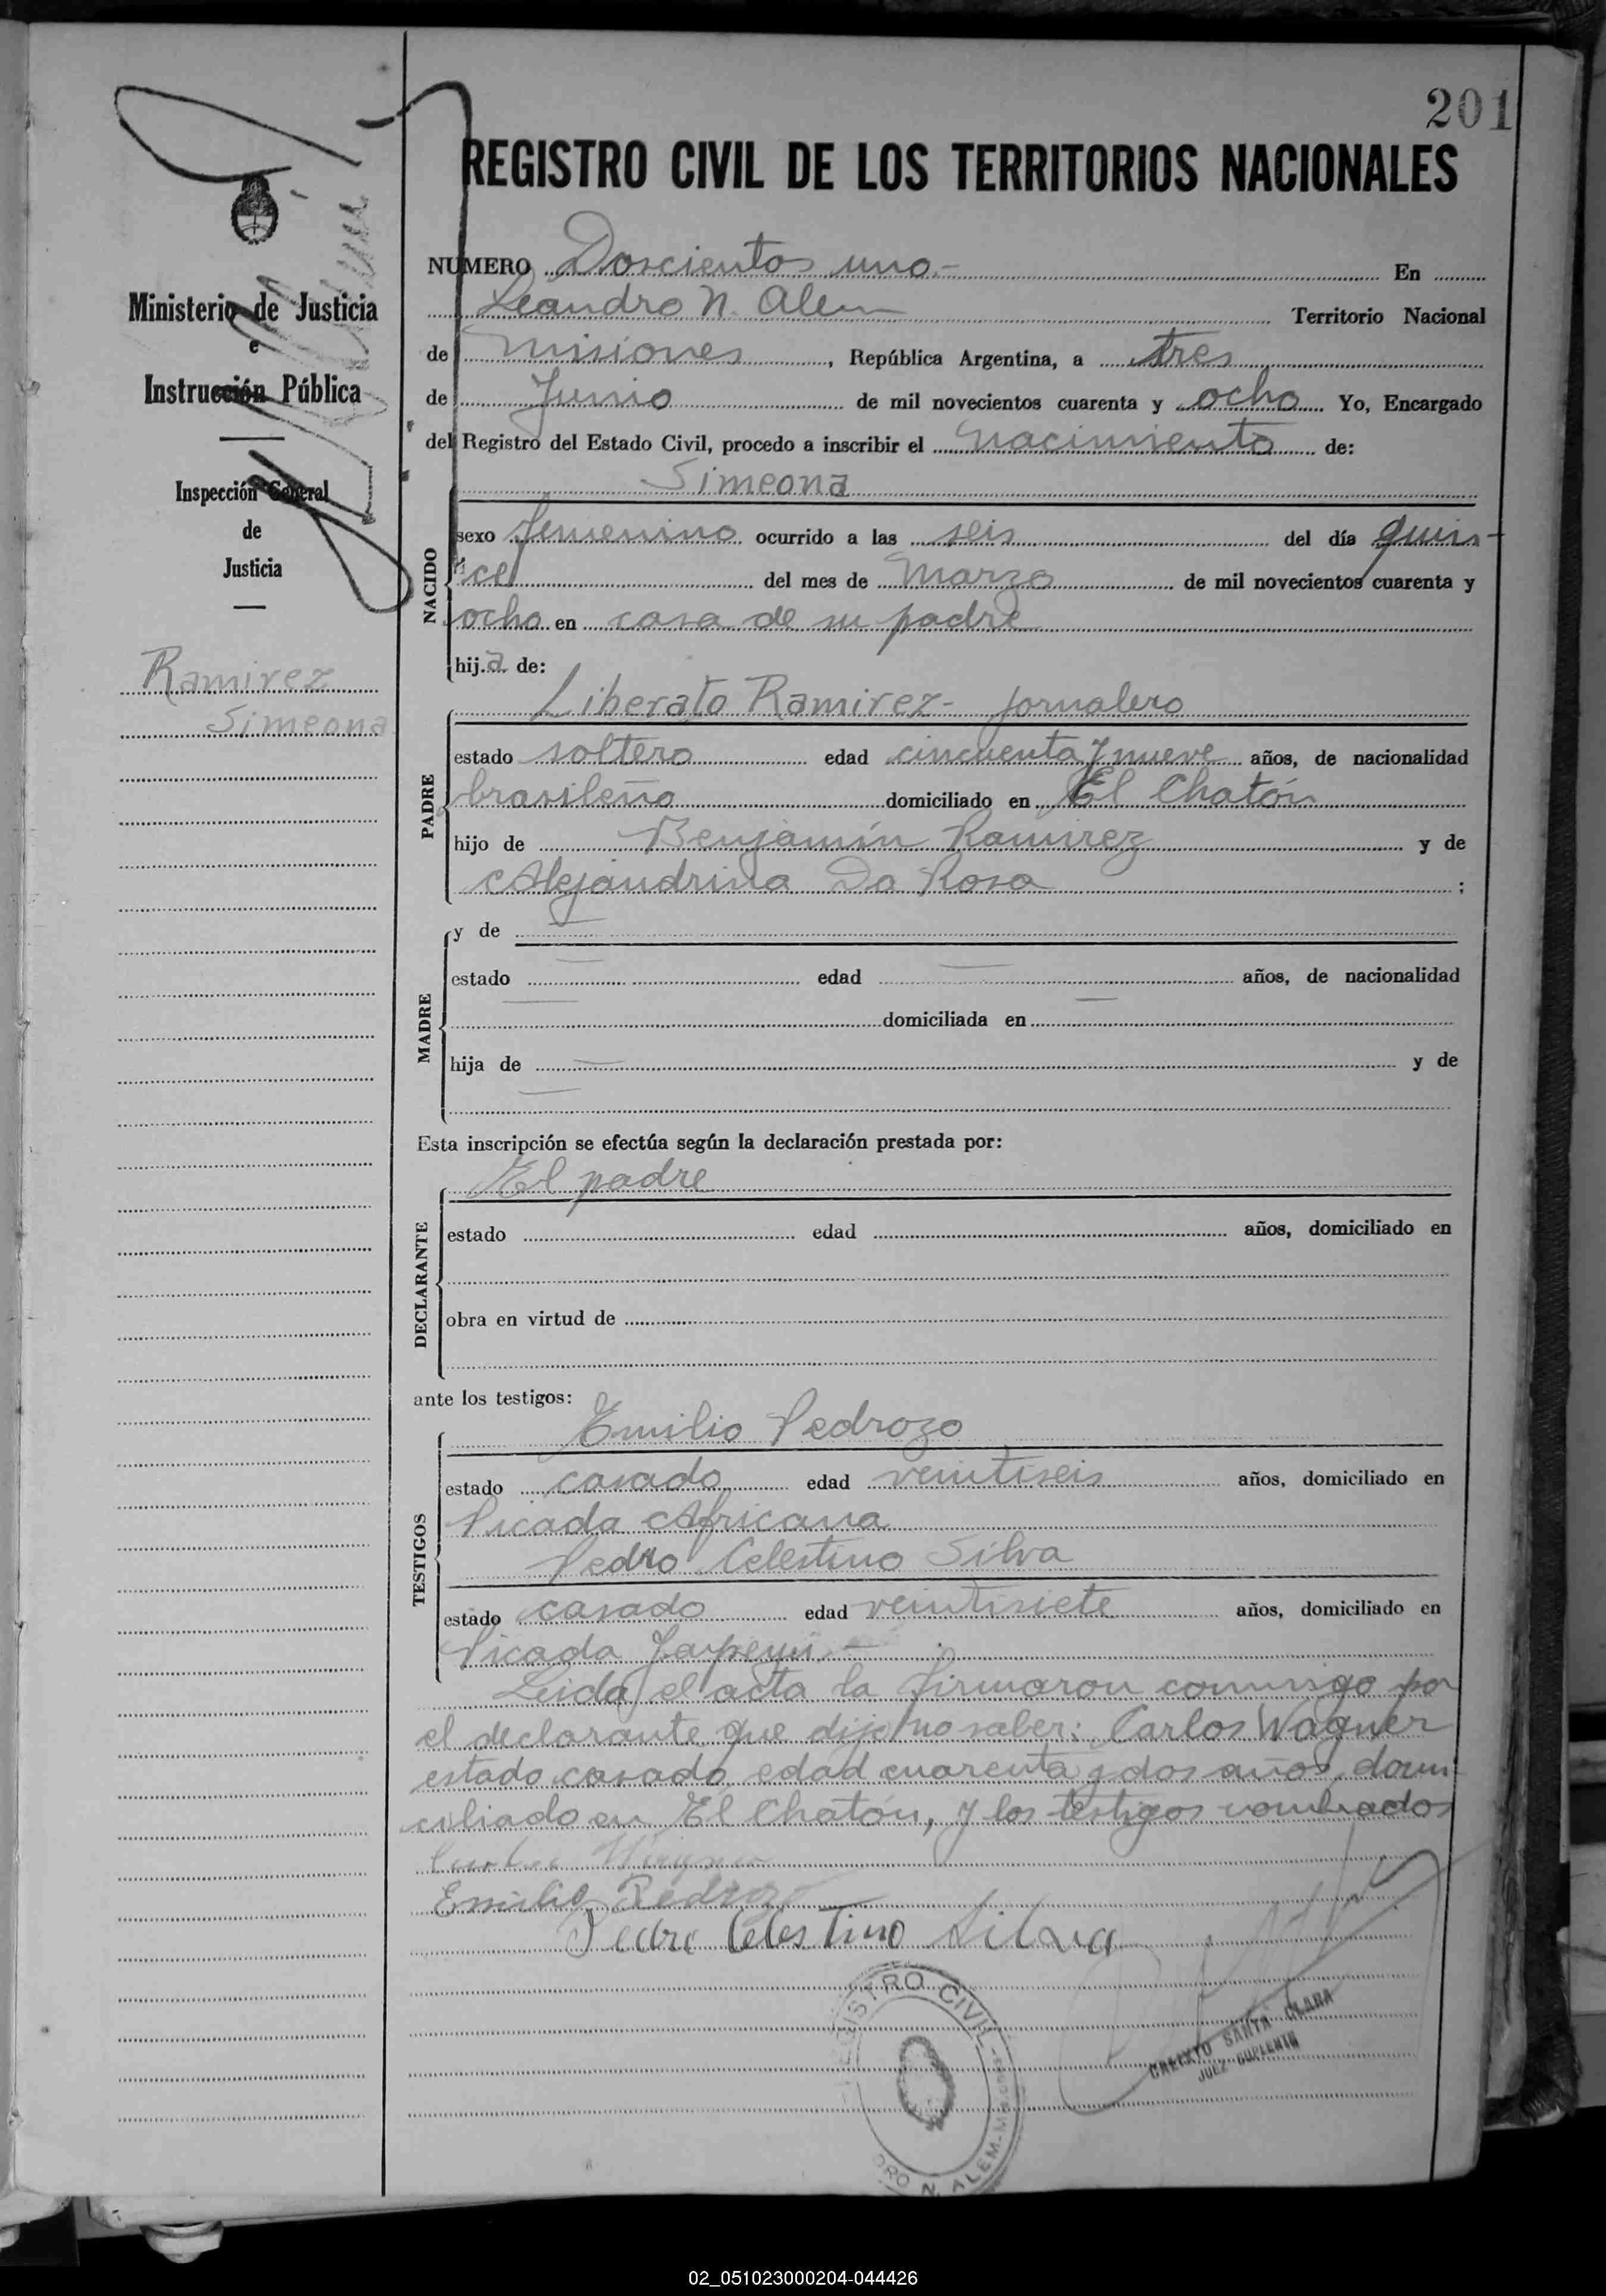 201
REGISTRO CIVIL DE LOS TERRITORIOS NACIONALES
Ministerio de Justicia
e
Instrucción Pública
Inspección General
de
Justicia
Ramirez
Simeona
NUMERO Doscientos uno.- En
Leandro N. Alem Territorio Nacional
de Misiones, República Argentina, a tres
de Junio de mil novecientos cuarenta y ocho Yo, Encargado
del Registro del Estado Civil, procedo a inscribir el nacimiento de:
Simeona
NACIDO
sexo femenino ocurrido a las seis del día quin-
ce del mes de Marzo de mil novecientos cuarenta y
ocho en casa de su padre
hija de:
Liberato Ramirez- jornalero
PADRE
estado soltero edad cincuenta y nueve años, de nacionalidad
brasileño domiciliado en El Chatón
hijo de Benjamín Ramirez y de
Alejandrina Da Rosa ;
MADRE
y de —
estado — edad — años, de nacionalidad
— domiciliada en —
hija de — y de
—
Esta inscripción se efectúa según la declaración prestada por:
El padre
DECLARANTE
estado edad años, domiciliado en
obra en virtud de
ante los testigos:
Emilio Pedrozo
TESTIGOS
estado casado edad veintiseis años, domiciliado en
Picada Africana
Pedro Celestino Silva
estado casado edad veintisiete años, domiciliado en
Picada Yapeyú.-
Leida el acta la firmaron conmigo por
el declarante que dijo no saber: Carlos Wagner
estado casado, edad cuarenta y dos años, domi-
ciliado en El Chatón, y los testigos nombrados
Carlos Wagner
Emilio Pedrozo
Pedro Celestino Silva
REGISTRO CIVIL
LEANDRO N. ALEM-MISIONES
CALIXTO SANTA CLARA
JUEZ SUPLENTE
02_051023000204-044426